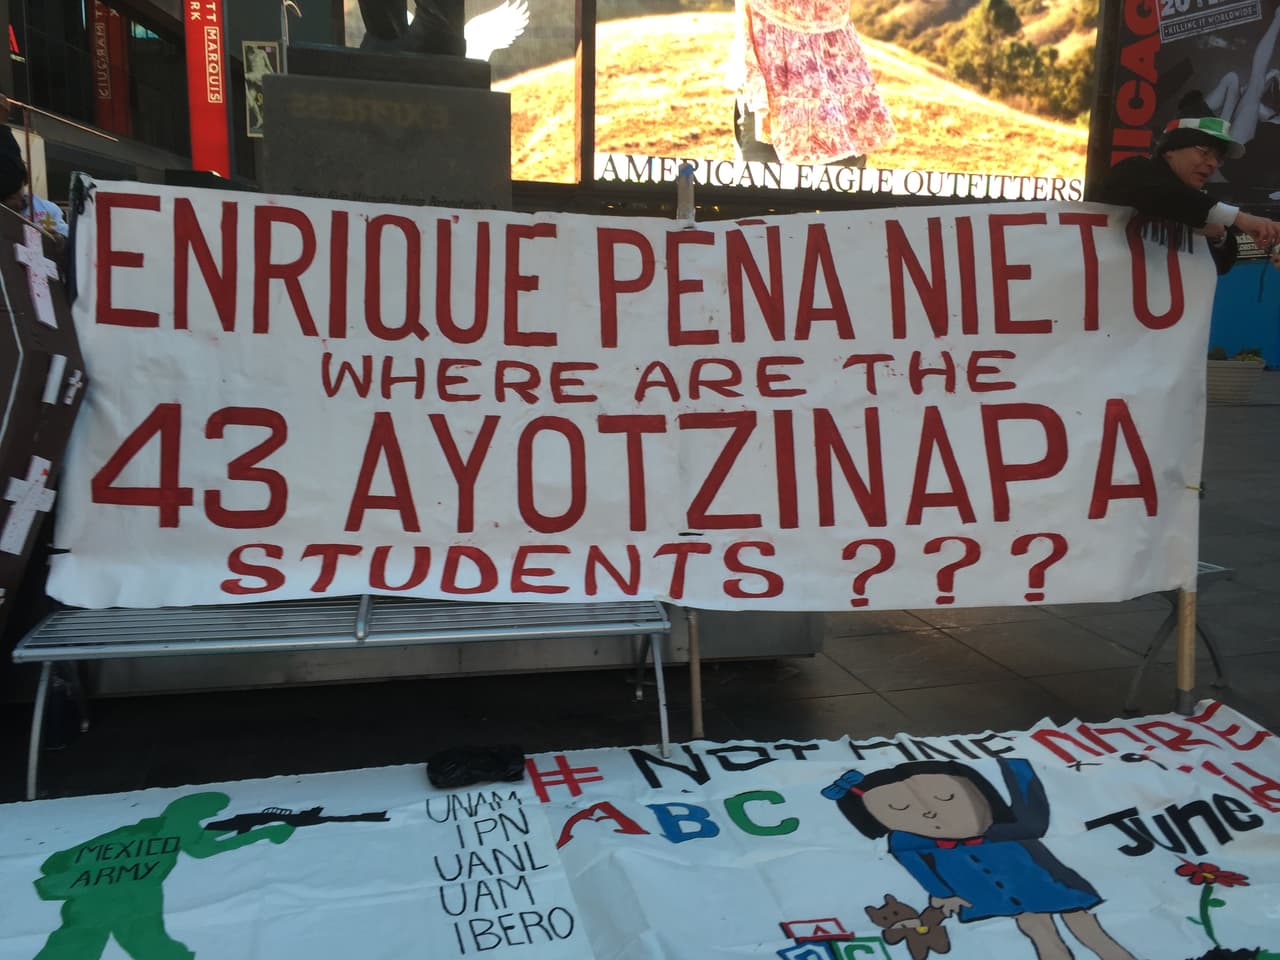 MARQUIS
EXPRESS
AMERICAN EAGLE OUTFITTERS
KILLING IT WORLDWIDE
ENRIQUE PEÑA NIETO
WHERE ARE THE
43 AYOTZINAPA
STUDENTS ???
# NOT ONE MORE
ABC
June
MEXICO
ARMY
UNAM
IPN
UANL
UAM
IBERO